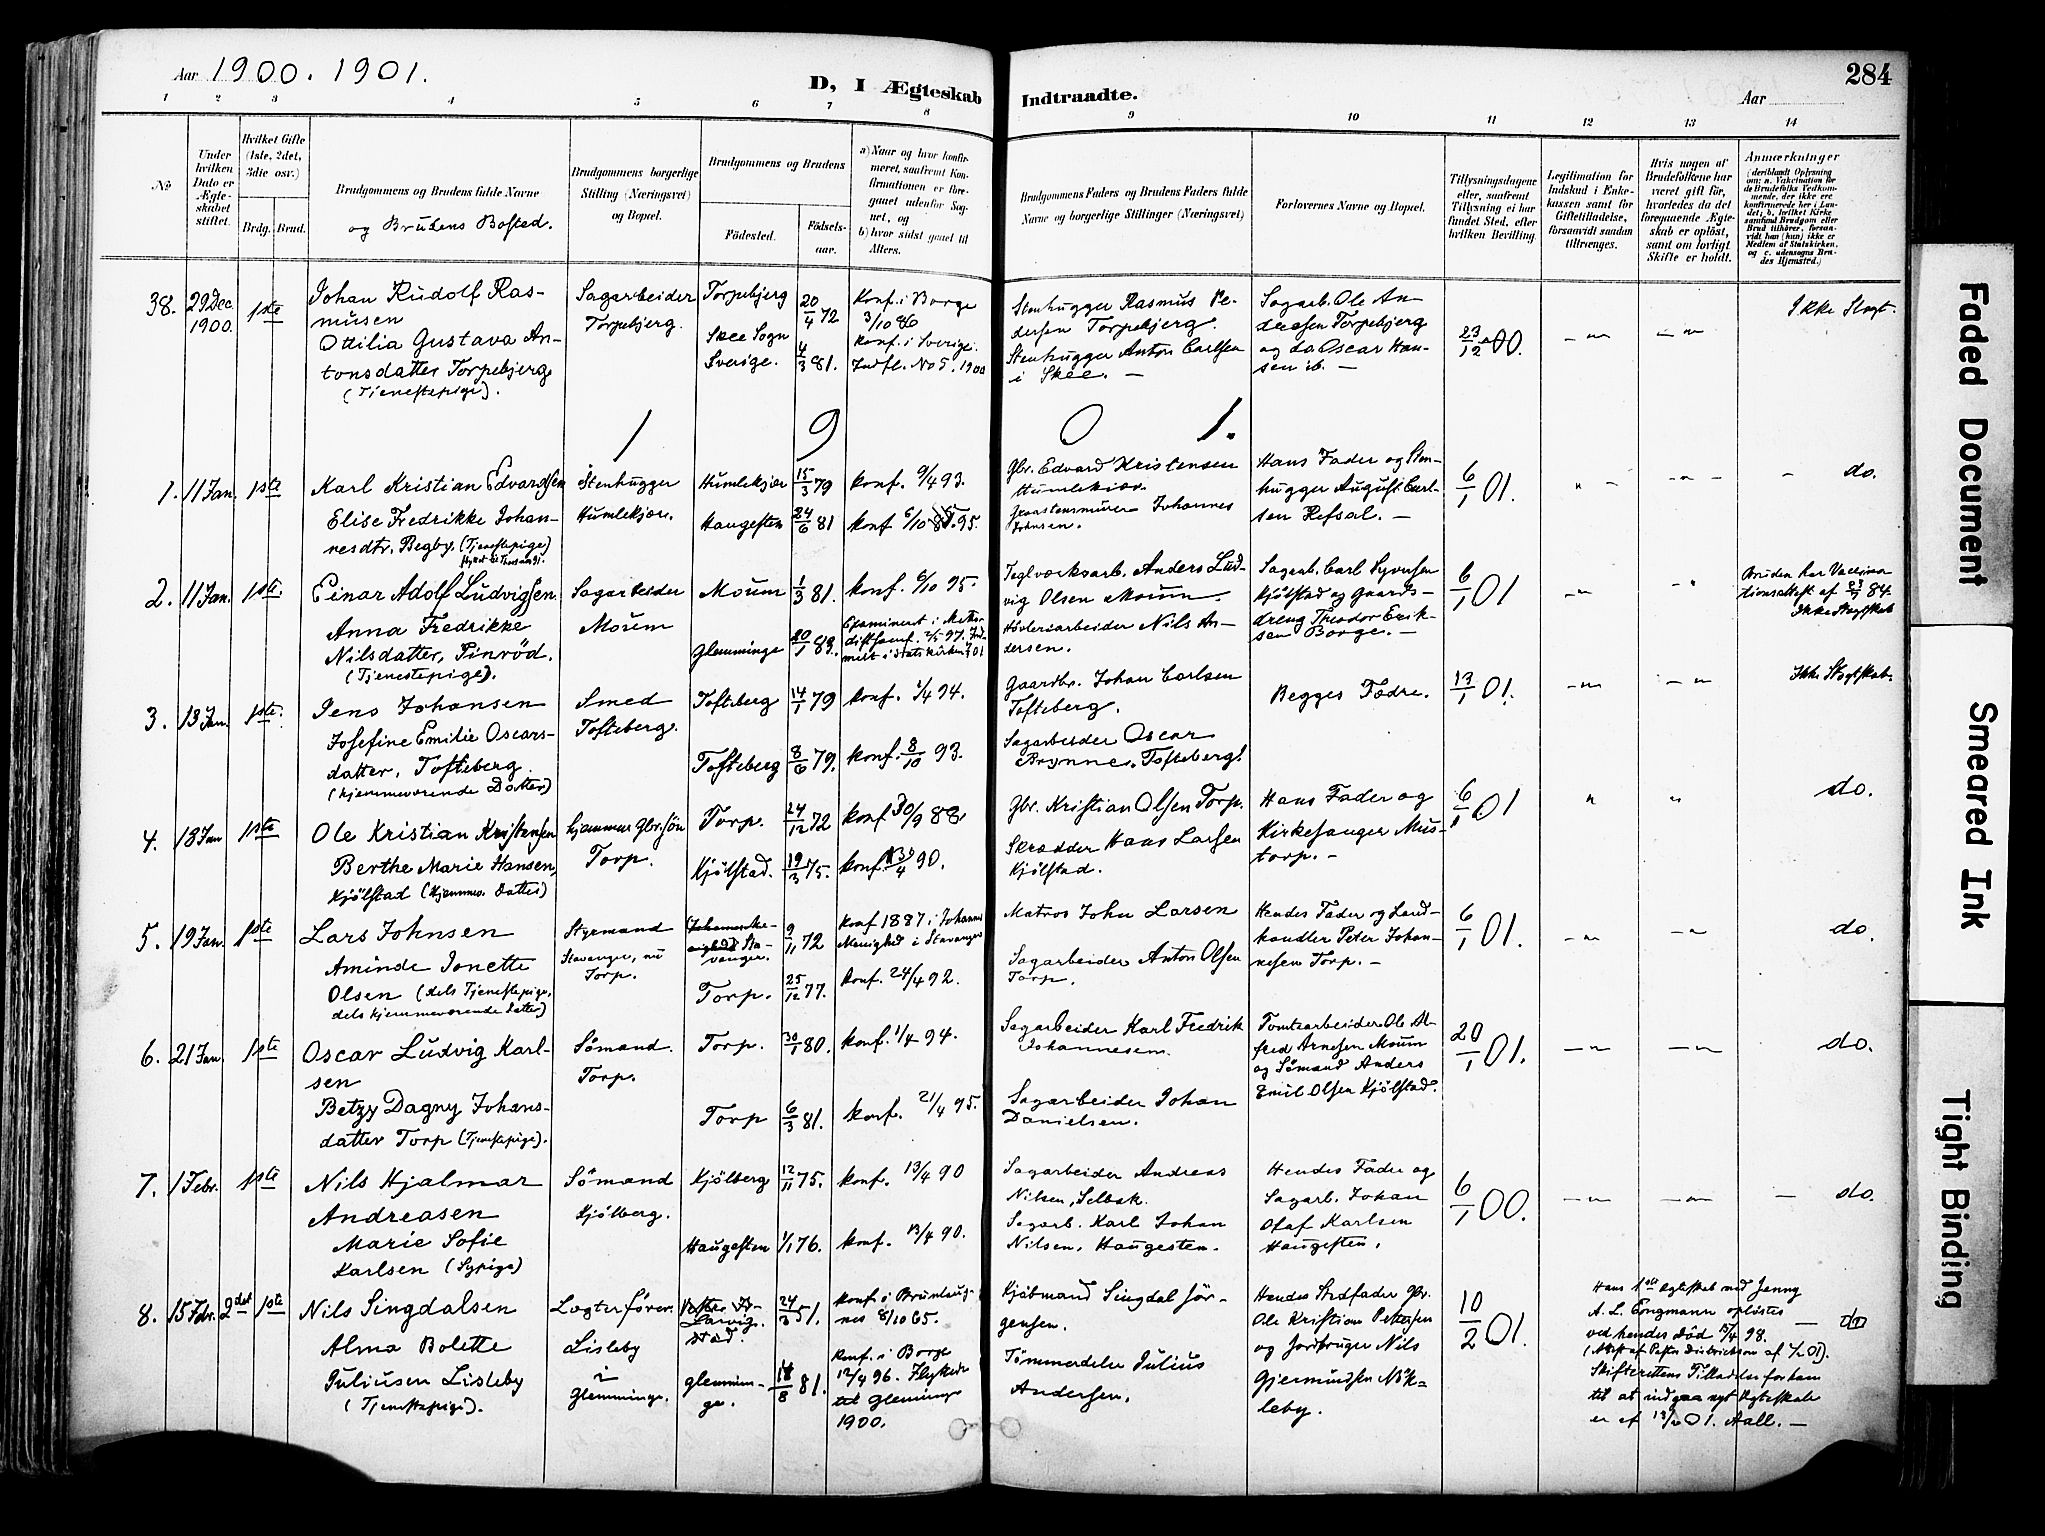 Aar 1900. 1901.
D, I Ægteskab Indtraadte.
Aar
284
1 2 3 4 5 6 7 8 9 10 11 12 13 14
No
Under hvilken Dato er Ægteskabet stiftet.
Hvilket Gifte (1ste, 2det, 3die osv.)
Brdg. Brud.
Brudgommens og Brudens fulde Navne
og Brudens Bosted.
Brudgommens borgerlige Stilling (Næringsvei) og Bopæl.
Brudgommens og Brudens
Fødested.
Fødselsaar.
a) Naar og hvor konfirmeret, saafremt Konfirmationen er foregaaet udenfor Sognet, og
b) hvor sidst gaaet til Alters.
Brudgommens Faders og Brudens Faders fulde Navne og borgerlige Stillinger (Næringsvei)
Forlovernes Navne og Bopæl.
Tillysningsdagene eller, saafremt Tillysning ei har fundet Sted, efter hvilken Bevilling.
Legitimation for Indskud i Enkekassen samt for Giftetilladelse, forsaavidt saadan tiltrænges.
Hvis nogen af Brudefolkene har været gift før, hvorledes da det foregaaende Ægteskab er opløst, samt om lovligt Skifte er holdt.
Anmærkninger
(deriblandt Oplysning om: a. Vakcination for de Brudefolks Vedkommende, der ikke ere konfirmerede her i Landet; b. hvilket Kirkesamfund Brudgom eller Brud tilhører, forsaavidt han (hun) ikke er Medlem af Statskirken, og c. udensogns Brudes Hjemsted.)
38. 29 Dec. 1900. 1ste
Johan Rudolf Rasmusen
Ottilia Gustava Antonsdatter Torpebjerg
(Tjenestepige).
Sagarbeider
Torpebjerg.
Torpebjerg 20/4 72
Skee Sogn Sverige. 4/3 81.
Konf. i Borge 3/10 86
Konf. i Sverige. Indfl. No 5. 1900
Stenhugger Rasmus Pedersen Torpebjerg.
Stenhugger Anton Carlsen i Skee. —
Sagarb. Ole Andersen Torpebjerg og do Oscar Hansen ib. —
23/12 00.
1 9 0 1.
1. 11 Jan. 1ste
Karl Kristian Edvardsen
Elise Fredrikke Johannesdtr. Begby. (Tjenestepige)
Stenhugger
Humlekjær.
Humlekjær 15/3 79
Haugesten 24/6 81
konf. 9/4 93.
konf 6/10 95.
Gbr. Edvard Kristensen Humlekiær.
Graastensmurer Johannes Johnsen.
Hans Fader og Stenhugger August Carlsen Refsal. —
6/1 01.
do.
2. 11 Jan. 1ste.
Einar Adolf Ludvigsen.
Anna Fredrikke Nilsdatter, Tinröd.
(Tjenestepige).
Sagarbeider
Moum
Moum 1/3 81.
Glemminge 20/1 83.
konf. 6/10 95
Teglværksarb. Anders Ludvig Olsen Moum
Høvleriarbeider Nils Andersen.
Sagarb. Carl Syversen Kjölstad og Gaardsdreng Theodor Eriksen Borge. —
6/1 01
Bruden har Vaccinationsattest af 84.
3. 13 Jan. 1ste.
Jens Johansen
Josefine Emilie Oscarsdatter, Tofteberg.
(hjemmeværende Datter)
Smed
Tofteberg.
Tofteberg 14/1 79
Tofteberg 8/6 79.
konf. 1/4 94.
konf. 8/10 93.
Gaardbr. Johan Carlsen Tofteberg.
Sagarbeider Oscar Brynne. Tofteberg.
Begges Fædre.
13/1 01.
Ikke Slægtskab.
4. 18 Jan 1ste
Ole Kristian Kristensen
Berthe Marie Hansen, Kjölstad (hjemmev. datter)
hjemmev. Gbr. sön
Torp.
Torp. 24/12 72
Kjölstad. 19/3 75.
konf 30/9 88.
konf. 13/4 90.
Gbr. Kristian Olsen Torp.
Skrædder Hans Larsen Kjölstad.
Hans Fader og Kirkesanger Mustorp. —
6/1 01
do.
5. 19 Jan. 1ste
Lars Johnsen
Aminde Jonette Olsen (dels Tjenestepige, dels hjemmeværende datter)
Styrmand
Stavanger, nu Torp.
Stavanger. 9/11 72
Torp. 25/12 77.
konf 1887 i Johannes Menighed i Stavanger
konf. 24/4 92.
Matros John Larsen
Sagarbeider Anton Olsen Torp.
Hendes Fader og Landhandler Peter Johannesen Torp. —
6/1 01.
do.
6. 21 Jan. 1ste
Oscar Ludvig Karlsen
Betzy Dagny Johansdatter Torp (Tjenestepige).
Sömand.
Torp.
Torp. 30/1 80.
Torp 6/3 81.
konf. 1/4 94.
konf. 21/4 95.
Sagarbeider Karl Fredrik Johannesen.
Sagarbeider Johan Danielsen.
Tomtearbeider Ole Alfred Arnesen Moum og Sömand Anders Emil Olsen Kjölstad.
20/1 01.
do.
7. 1 Febr. 1ste
Nils Hjalmar Andreasen
Marie Sofie Karlsen (Sypige)
Sömand
Kjölberg.
Kjölberg 12/11 75.
Haugesten 1/1 76.
konf. 13/4 90
konf. 13/4 90.
Sagarbeider Andreas Nilsen, Selbak.
Sagarb. Karl Johan Nilsen. Haugesten.
Hendes Fader og Sagarb. Johan Olaf Karlsen Haugesten.
6/1 00.
do.
8. 15 Febr. 2det 1ste
Nils Singdalsen
Alma Bolette Juliusen Lisleby
(Tjenestepige).
Logterförer.
Lisleby i Glemminge.
Glemminge. 18/8 81.
konf. i Brunlagnes 8/10 65.
konf. i Borge 12/4 96. Flyttede til Glemminge 1900.
Kjöbmand Singdal Jörgensen.
Tömmerdeler Julius Andersen.
Hendes Stedfader Gbr. Ole Kristian Pettersen og Jordbruger Nils Gjermundsen Nökleby.
10/2 01.
Hans 1ste Ægteskab med Jenny A. L. Engmann oplöstes ved hendes död 15/4 98.
Skifterettens Tilladelse for ham til at indgaa nyt Ægteskab er af 13/2 01. Aall. —
Faded Document
Smeared Ink
Tight Binding